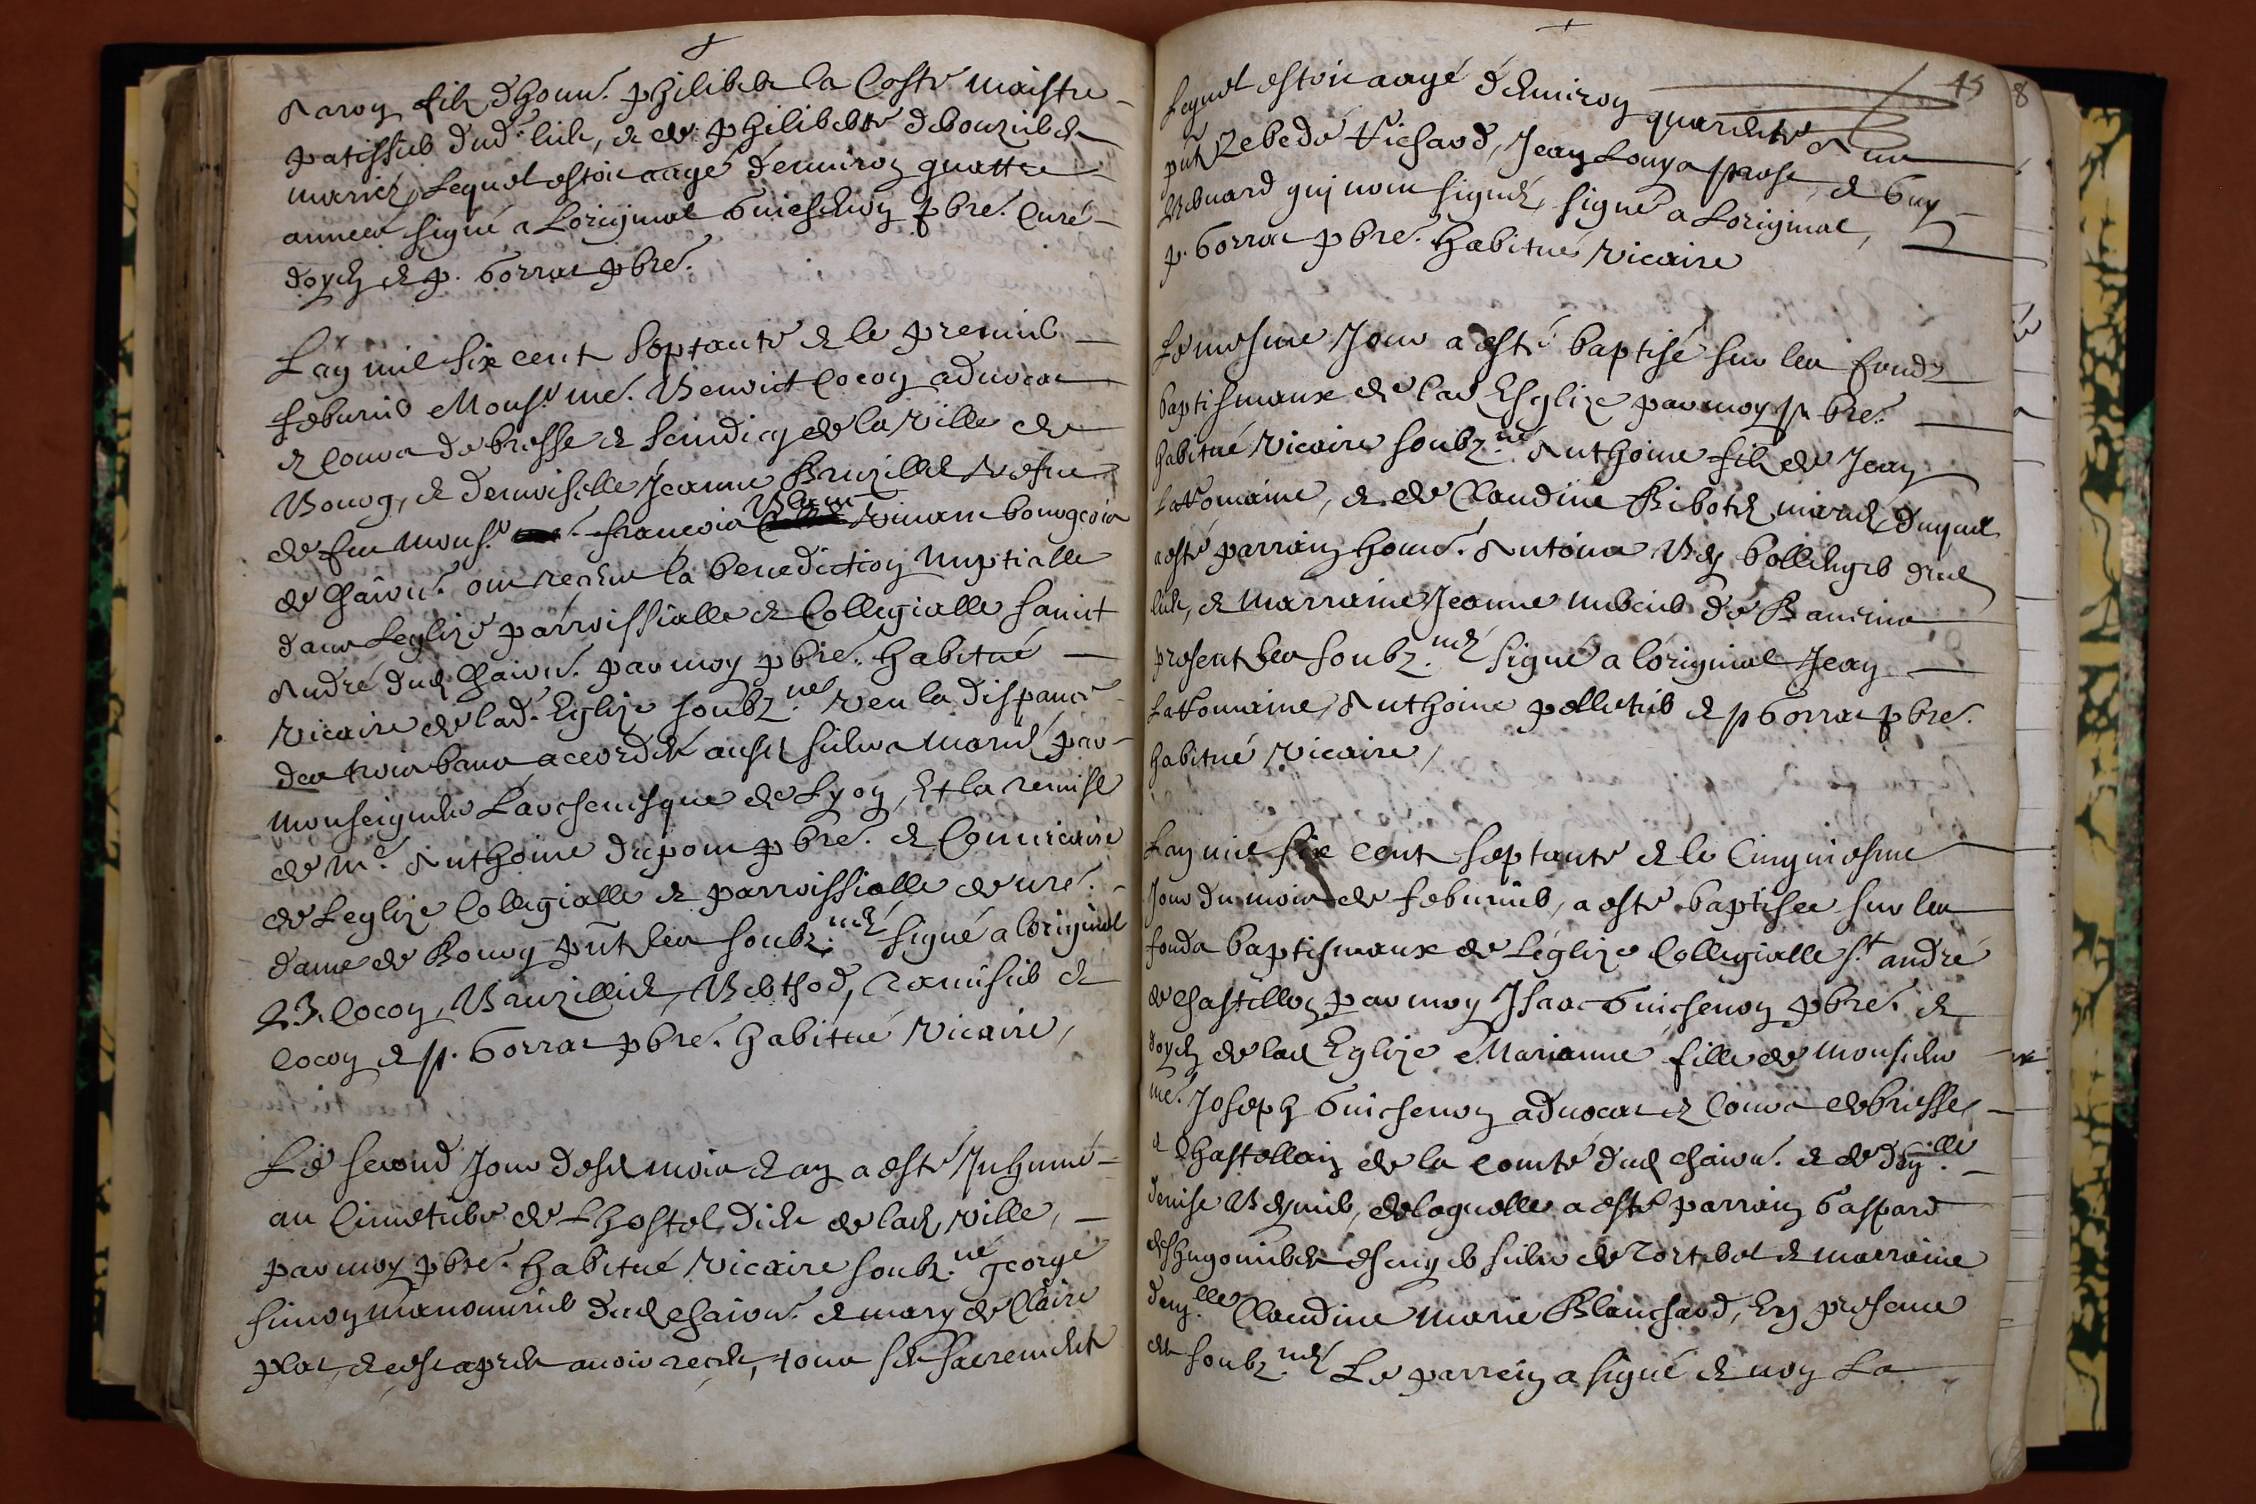 filz d'honn.^e philibert la Coste Maistre
patissier dud. lieu, & de philiberte
mariez, Lequel estoit aagé d'enuiron quattre
années signé a L'original Guichenon pbre. Curé
doyen & p. Gorrat pbre.
L'an mil six cent septante & le premier
feburier Mons.^r me. Benoist Cocon aduocat
& Cons.^r de bresse & scindicq de la ville de
Bourg, & demoiselle Jeanne vefue
de feu Mons.^r francois bourgeois
de Chaon. ont receu la benediction Nuptialle
dans L'eglize parroissialle & Collegialle sainct
André dud. Chaon. par moy pbre. habitué
vicaire de lad. Eglize soubz.^né veu la dispance
des trois bans accordée ausd. sieurs mariés par
Monseigneur L'archeuesque de Lyon, Et la remise
de M.^e Anthoine dupont pbre. &
de L'eglize Collegialle & parroissialle de nre.
dame de Bourg pnt les soubz.^nés signé a l'original
B. Cocon, &
Cocon & p. Gorrat pbre. habitué vicaire,
Le second Jour desd. mois & an a esté Inhumé
au Cimetiere de L'hostel dieu de lad. ville,
par moy pbre. habitué vicaire soubz.^né george
simon manouurier dud. chaon. & mary de Claire
plat, decedé apres auoir receu, tous ses sacrements
Lequel estoit aagé d'enuiron quarente & un
pnt Zebedé Richard, Jean Louys & Guy
qui n'ont signés, signé a L'original,
p. Gorrat pbre. habitué vicaire
Le mesme Jour a esté baptisé sur les fondz
baptismaux de lad. Esglize par moy pbre.
habitué vicaire soubz.^né Anthoine filz de Jean
& de Claudine mariez, duquel
a esté parrain honn.^e dud.
lieu, & Marraine Jeanne
present les soubz.^nés signé a l'original Jean
Anthoine & p Gorrat pbre.
habitué vicaire,
L'an mil six cent septante & le Cinquiesme
Jour du mois de feburier, a esté baptisee sur les
fonds baptismaux de L'eglize Collegialle S.^t andré
de chastillon par moy Isaac Guichenon pbre. &
doyen de lad. Eglize Marianne fille de Monsieur
me. Joseph Guichenon aduocat & Cons.^r de bresse,
& Chastellain de la Comté dud. chaon. & de
denise de laquelle a esté parrain Gaspard
& marraine
dam.^lle Claudine Marie Blanchard, En presence
des soubz.^nés Le parrain a signé & non La
45